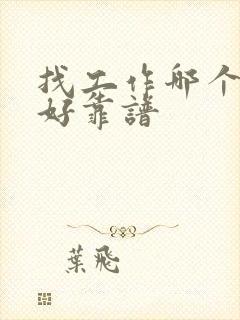 找工作哪个
好靠譜
葉飛